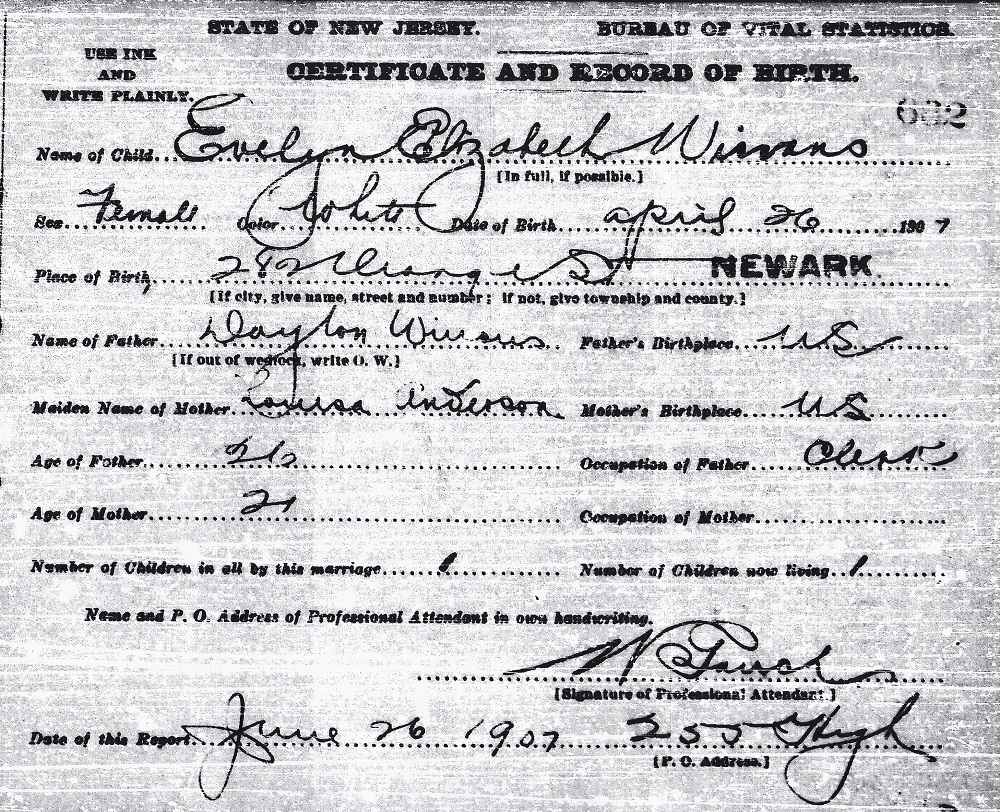 STATE OF NEW JERSEY. BUREAU OF VITAL STATISTICS.
USE INK
AND
WRITE PLAINLY.
CERTIFICATE AND RECORD OF BIRTH.
632
Name of Child Evelyn Elizabeth Winans
[In full, if possible.]
Sex Female Color White Date of Birth April 26 1907
Place of Birth, 282 Orange St NEWARK.
[If city, give name, street and number; if not, give township and county.]
Name of Father Dayton Winans Father's Birthplace U S
[If out of wedlock, write O. W.]
Maiden Name of Mother Louisa Anderson Mother's Birthplace U S
Age of Father 26 Occupation of Father Clerk
Age of Mother 21 Occupation of Mother
Number of Children in all by this marriage 1 Number of Children now living 1
Name and P. O. Address of Professional Attendant in own handwriting.
W
[Signature of Professional Attendant.]
Date of this Report June 26 1907 255 High
[P. O. Address.]